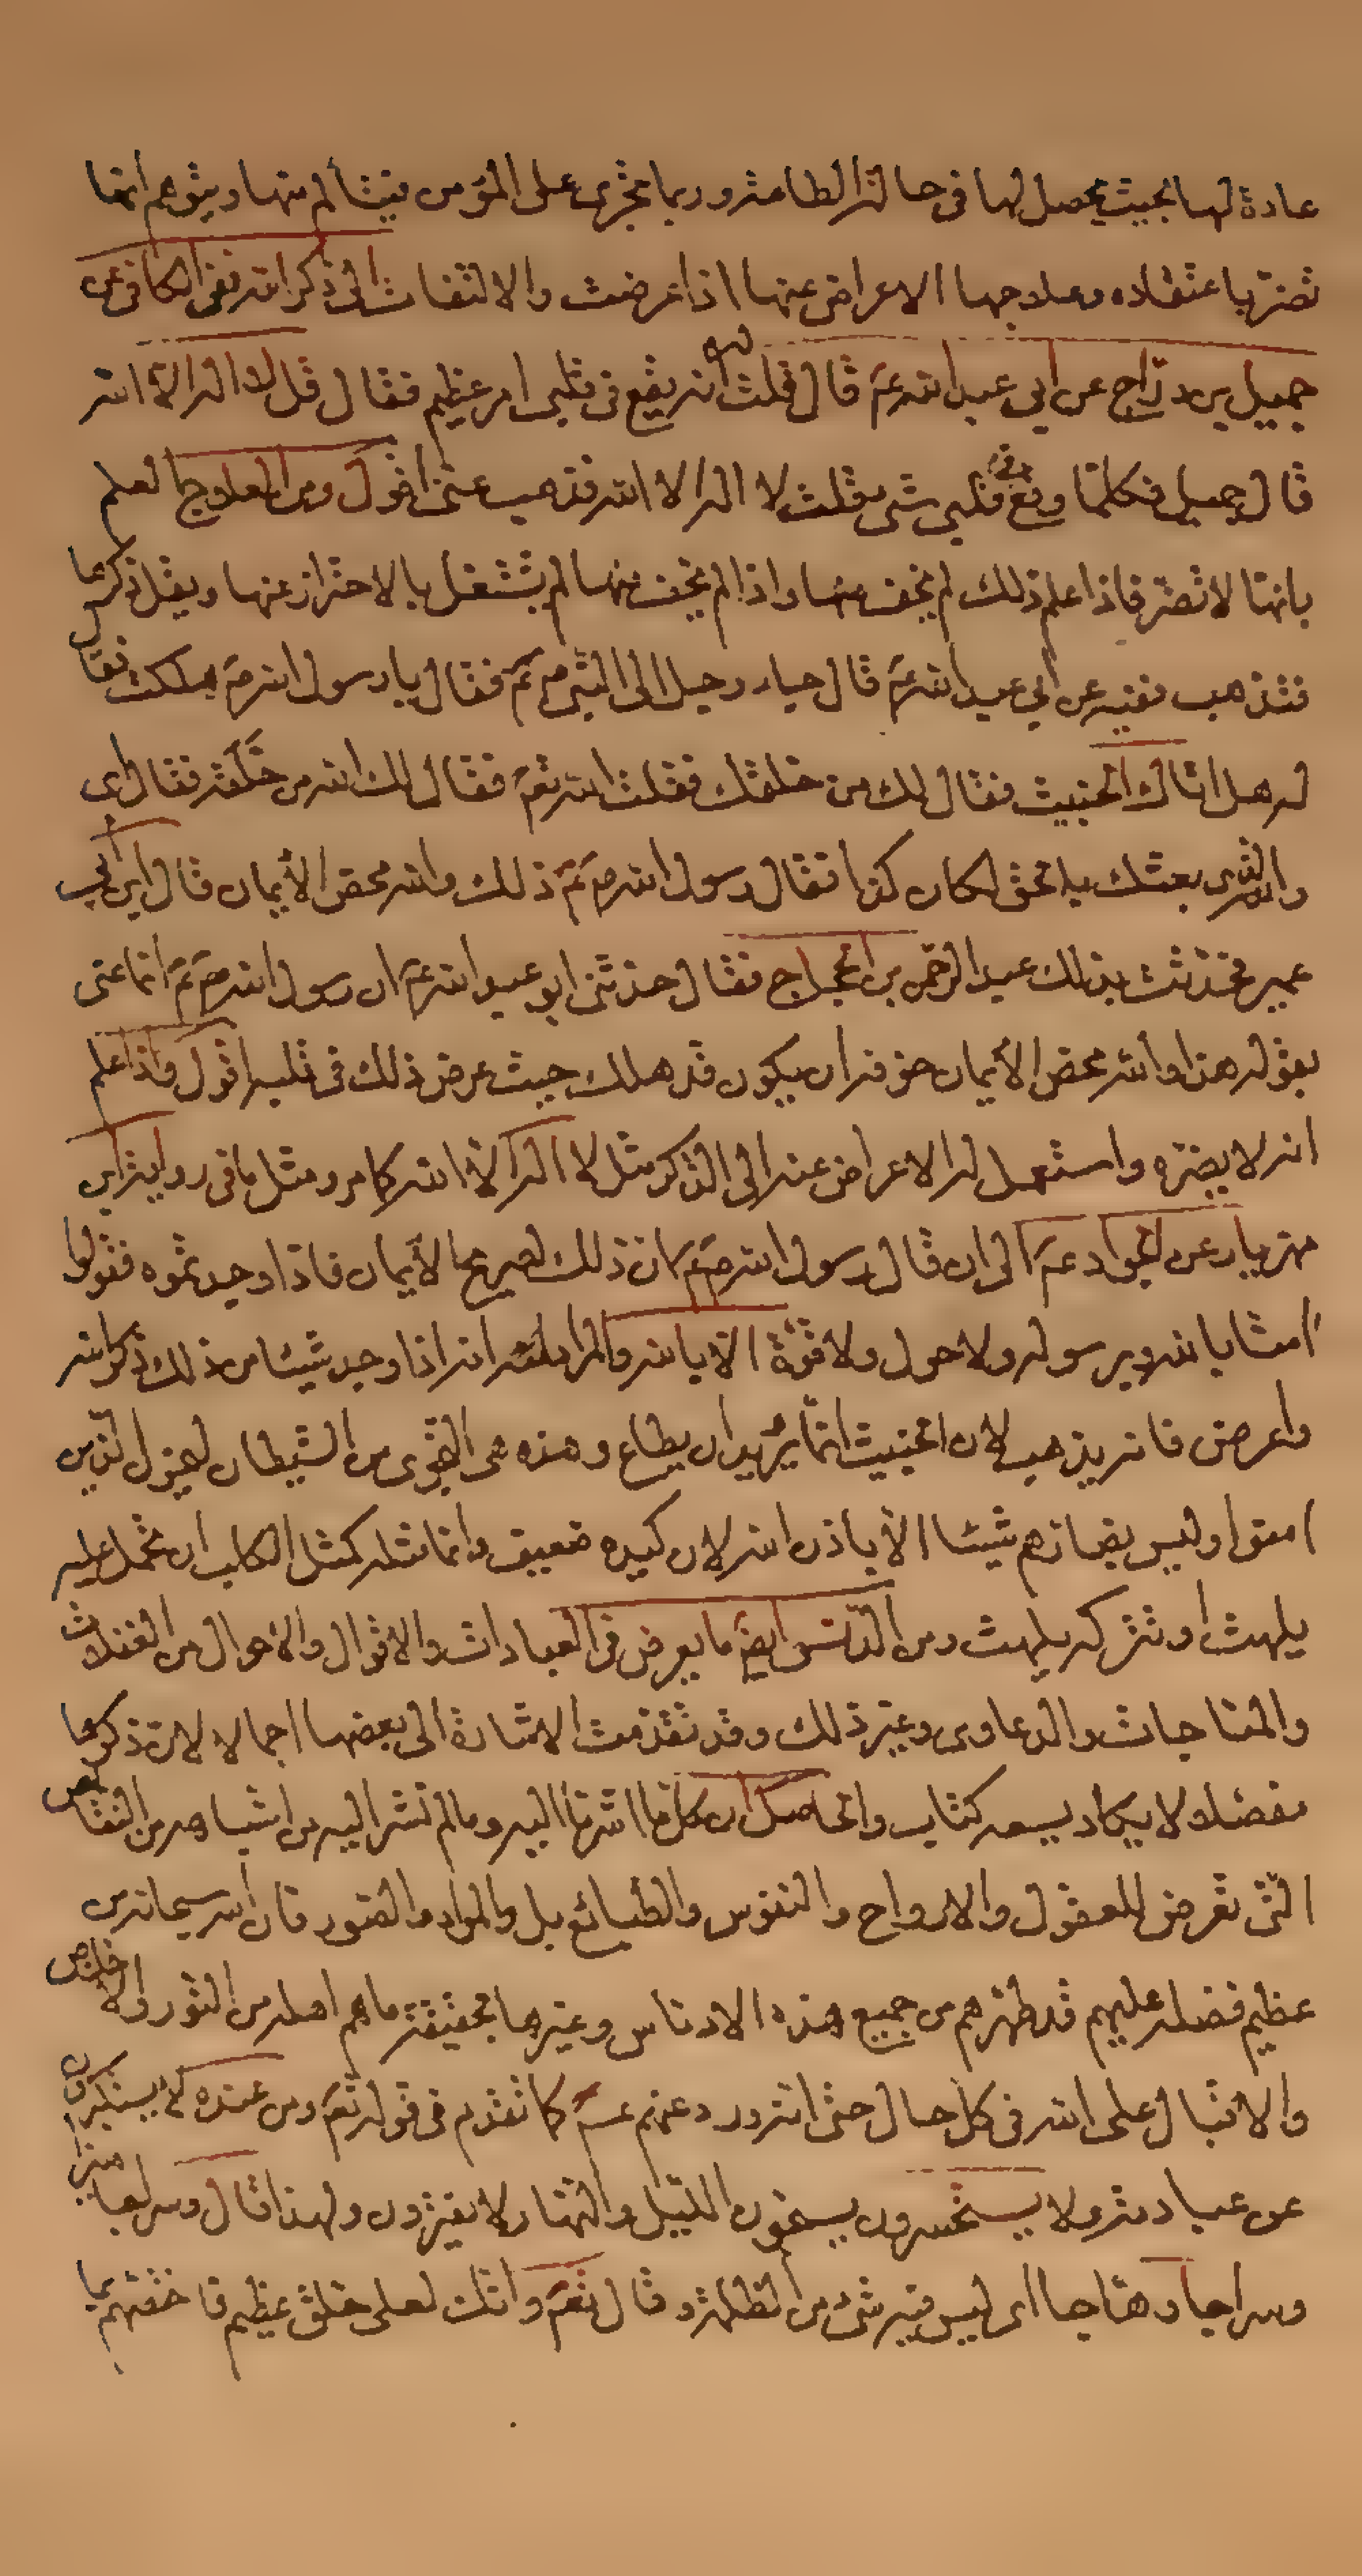 عادة لها بحيث يحصل لها في حالة الطاعة وربما تجري على المؤمن فيتألم منها ويتوهم انها
تضرّ باعتقاده وعلاجها الاعراض عنها اذا عرضت والالتفات الى ذكر الله ففي الكافي عن
جميل بن درّاج عن ابي عبد الله عم قال قلت له انه يقع في قلبي امر عظيم فقال قل لا اله الا الله
قال جميل فكلما وقع في قلبي شيء قلت لا اله الا الله فذهب عنّي اقول ومن العلاج العلم
بانها لا تضرّ فاذا علم ذلك لم يخف منها واذا لم يخف منها لم يشتغل بالاحتراز عنها ويقلّ ذكرها
فتذهب ففيه عن ابي عبد الله عم قال جاء رجل الى النبي ص م فقال يا رسول الله ص هلكت فقال
له هل اتاك الخبيث فقال لك من خلقك فقلت الله تعم فقال لك الله من خلقه فقال اى
والذي بعثك بالحق لكان كذا فقال رسول الله ص م ذلك والله محض الأيمان قال ابن ابي
عمير فحدّثت بذلك عبد الرحمن بن الحجاج فقال حدثني ابو عبد الله عم ان رسول الله ص م انما عنى
بقوله هذا والله محض الأيمان خوفه ان يكون قد هلك حيث عرض ذلك في قلبه اقول فاذا علم
انه لا يضرّه واستعمل له الاعراض عنه الى الذكر مثل لا اله الا الله كما مر ومثل ما في رواية ابن
مهزيار عن الجواد عم الى ان قال رسول الله ص م ان ذلك لصريح الأيمان فاذا وجدتموه فقولوا
امنا بالله وبرسوله ولا حول ولا قوّة الا بالله والمراد انه اذا وجد شيئا من ذلك ذكر الله
واعرض فانه يذهب لان الخبيث انما يريد ان يطاع وهذه هي النجوى من الشيطان ليحزن الذين
امنوا وليس بضارّهم شيئا الا باذن الله لان كيده ضعيف وانما مثله كمثل الكلب ان تحمل عليه
يلهث او تتركه يلهث ومن الدنس ايضا ما يعرض في العبادات والاقوال والاحوال من الغفلات
والمناجات والدعاوى وغير ذلك وقد تقدّمت الاشارة الى بعضها اجمالا لان ذكرها
مفصّلا لا يكاد يسعه كتاب والحاصل ان كل ما اشرنا اليه وما لم نشر اليه من اشباهه من النقائص
التي تعرض للعقول والارواح والنفوس والطبائع بل والمواد والصور فان الله سبحانه من
عظيم فضله عليهم قد طهّرهم من جميع هذه الادناس وغيرها بحقيقة ما هم اهله من النور والاخلاص
والاقبال على الله في كل حال حتى انه ورد عنهم عم كما تقدم في قوله تعم ومن عنده لا يستكبرون
عن عبادته ولا يستحسرون يسبحون الليل والنهار لا يفترون ولهذا قال وسراجا منيرا
وسراجا وهّاجا اى ليس فيه شيء من الظلمة وقال تعم وانك لعلى خلق عظيم